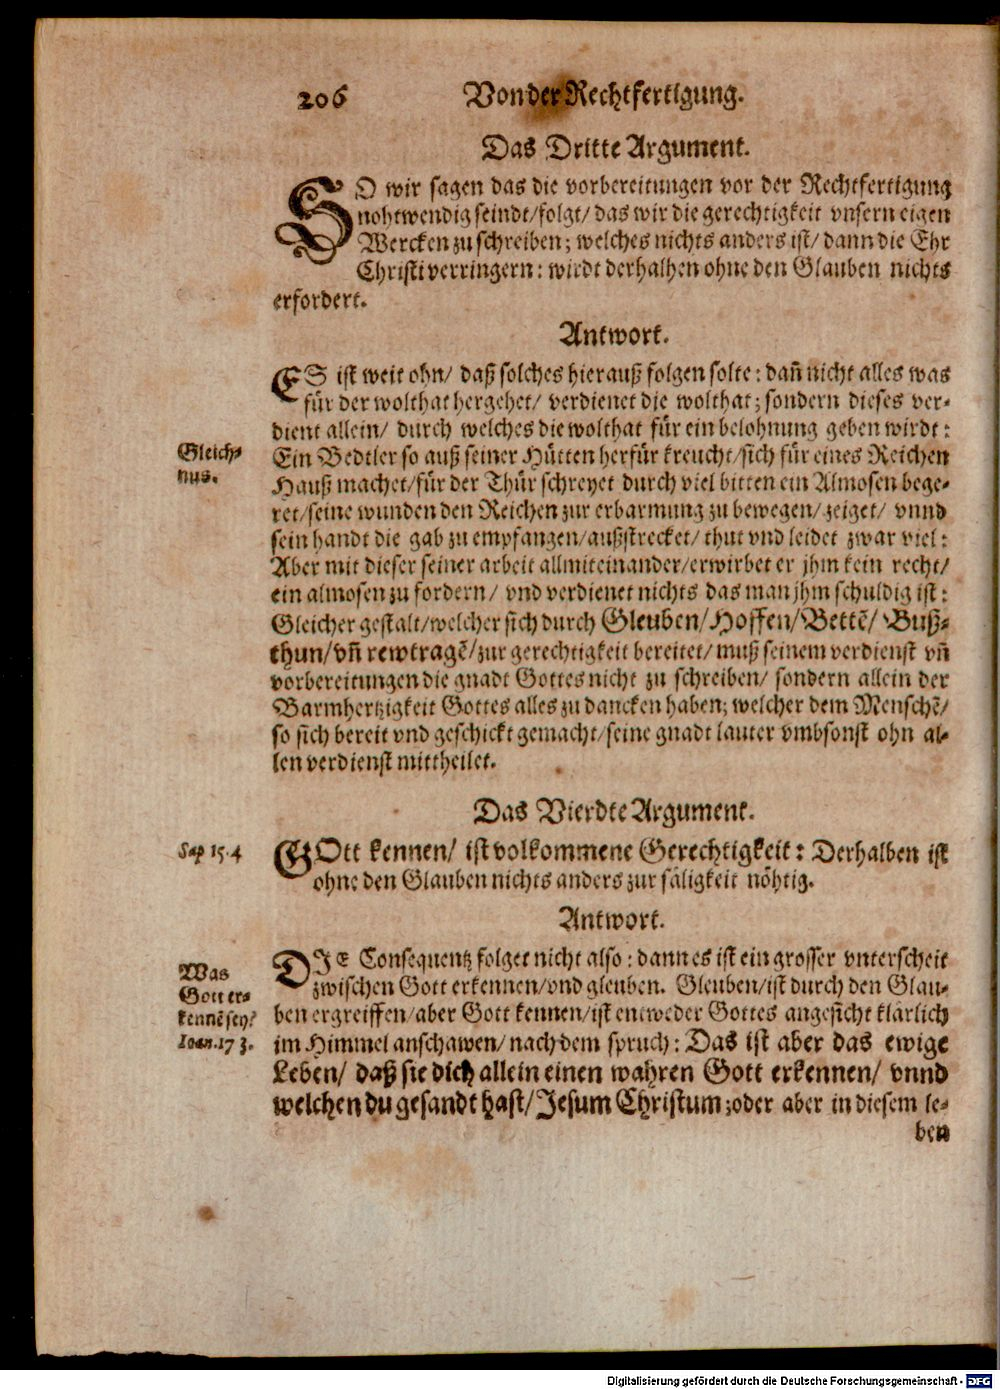 206 Von der Rechtfertigung.
Das Dritte Argument.
SO wir sagen das die vorbereitungen vor der Rechtfertigung
nohtwendig seindt/folgt/ das wir die gerechtigkeit vnsern eigen
Wercken zu schreiben; welches nichts anders ist/ dann die Ehr
Christi verringern: wirdt derhalhen ohne den Glauben nichts
erfordert.
Antwort.
ES ist weit ohn/ daß solches hierauß folgen solte: dañ nicht alles was
für der wolthat hergehet/ verdienet die wolthat; sondern dieses ver-
dient allein/ durch welches die wolthat für ein belohnung geben wirdt:
Gleich-
nus.
Ein Bedtler so auß seiner Hütten herfür kreucht/sich für eines Reichen
Hauß machet/für der Thür schreyet durch viel bitten ein Almosen bege-
ret/seine wunden den Reichen zur erbarmung zu bewegen/ zeiget/ vnnd
sein handt die gab zu empfangen/außstrecket/ thut vnd leidet zwar viel:
Aber mit dieser seiner arbeit allmiteinander/erwirbet er jhm kein recht/
ein almosen zu fordern/ vnd verdienet nichts das man jhm schuldig ist:
Gleicher gestalt/welcher sich durch Gleuben/Hoffen/Bettē/ Buß-
thun/vñ rewtragē/zur gerechtigkeit bereitet/muß seinem verdienst vñ
vorbereitungen die gnadt Gottes nicht zu schreiben/ sondern allein der
Barmhertzigkeit Gottes alles zu dancken haben; welcher dem Menschē/
so sich bereit vnd geschickt gemacht/seine gnadt lauter vmbsonst ohn al-
len verdienst mittheilet.
Das Vierdte Argument.
Sap 15.4
GOtt kennen/ ist volkommene Gerechtigkeit: Derhalben ist
ohne den Glauben nichts anders zur säligkeit nöhtig.
Antwort.
DIE Consequentz folget nicht also: dann es ist ein grosser vnterscheit
Was
Gott er-
kennē sey?
Ioan.17 3.
zwischen Gott erkennen/vnd gleuben. Gleuben/ist durch den Glau-
ben ergreiffen/aber Gott kennen/ist entweder Gottes angesicht klärlich
im Himmel anschawen/ nach dem spruch: Das ist aber das ewige
Leben/ daß sie dich allein einen wahren Gott erkennen/ vnnd
welchen du gesandt hast/Jesum Christum; oder aber in diesem le-
ben
Digitalisierung gefördert durch die Deutsche Forschungsgemeinschaft - DFG